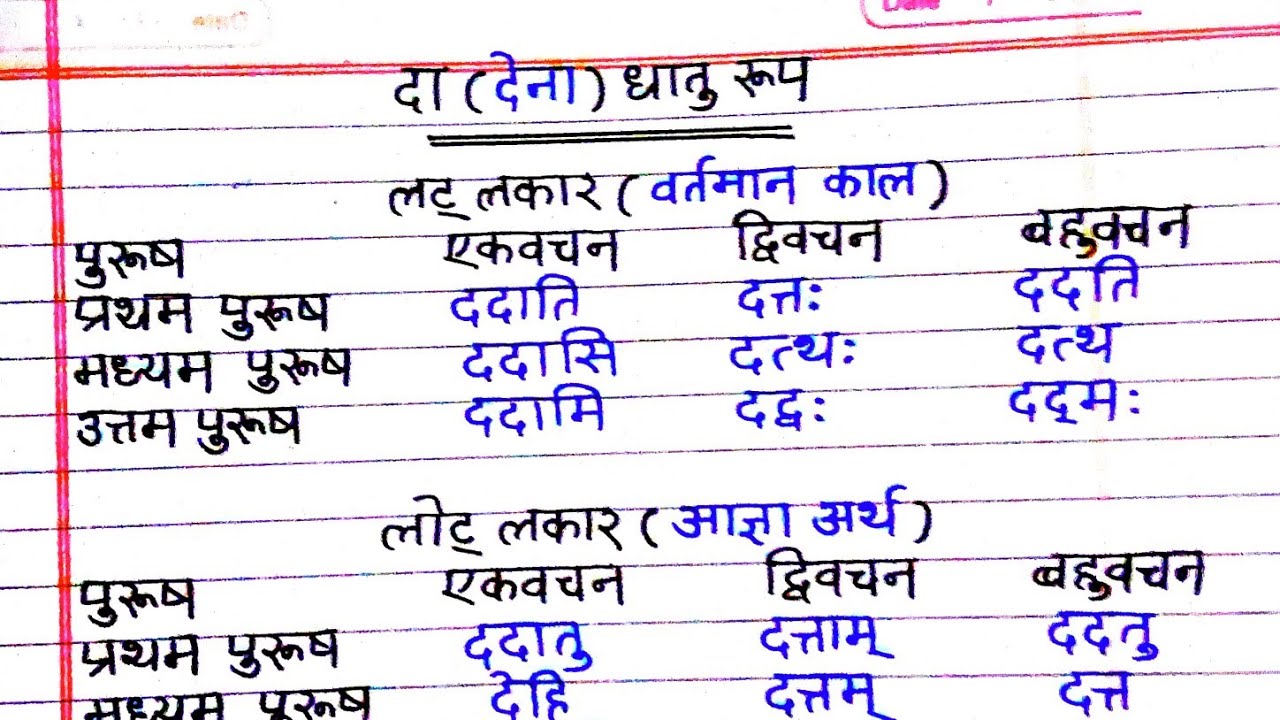 Date
दा (देना) धातु रूप
लट् लकार (वर्तमान काल)
पुरूष एकवचन द्विवचन बहुवचन
प्रथम पुरूष ददाति दत्तः ददति
मध्यम पुरूष ददासि दत्थः दत्थ
उत्तम पुरूष ददामि दद्वः दद्मः
लोट् लकार (आज्ञा अर्थ)
पुरूष एकवचन द्विवचन बहुवचन
प्रथम पुरूष ददातु दत्ताम् ददतु
मध्यम पुरूष देहि दत्तम् दत्त